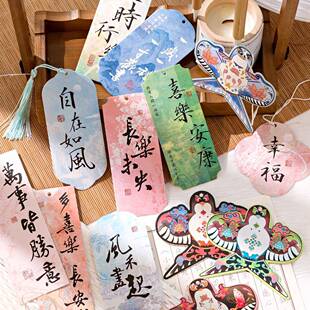 時行
自在如風
長樂未央
喜樂安康
幸福
萬事皆勝意
多喜樂長安
風禾盡起